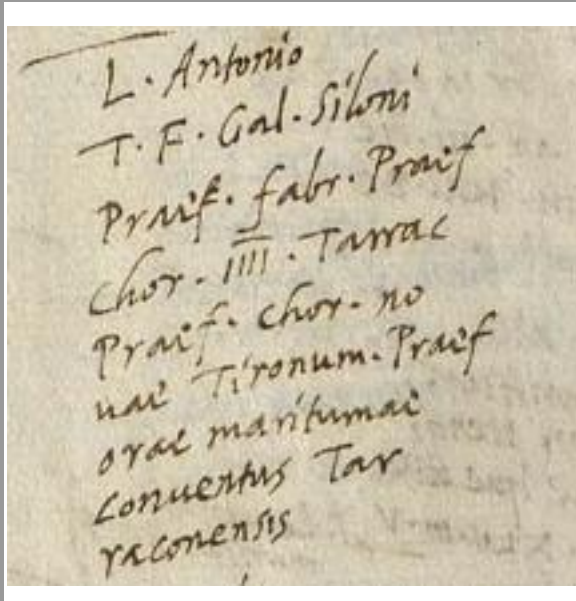 L. Antonio
T. F. Gal. Siloni
Praef. fabr. Praef
Chor. IIII. Tarrac
Praef. Chor. no
uae Tironum. Praef
orae maritumae
conuentus Tar
raconensis